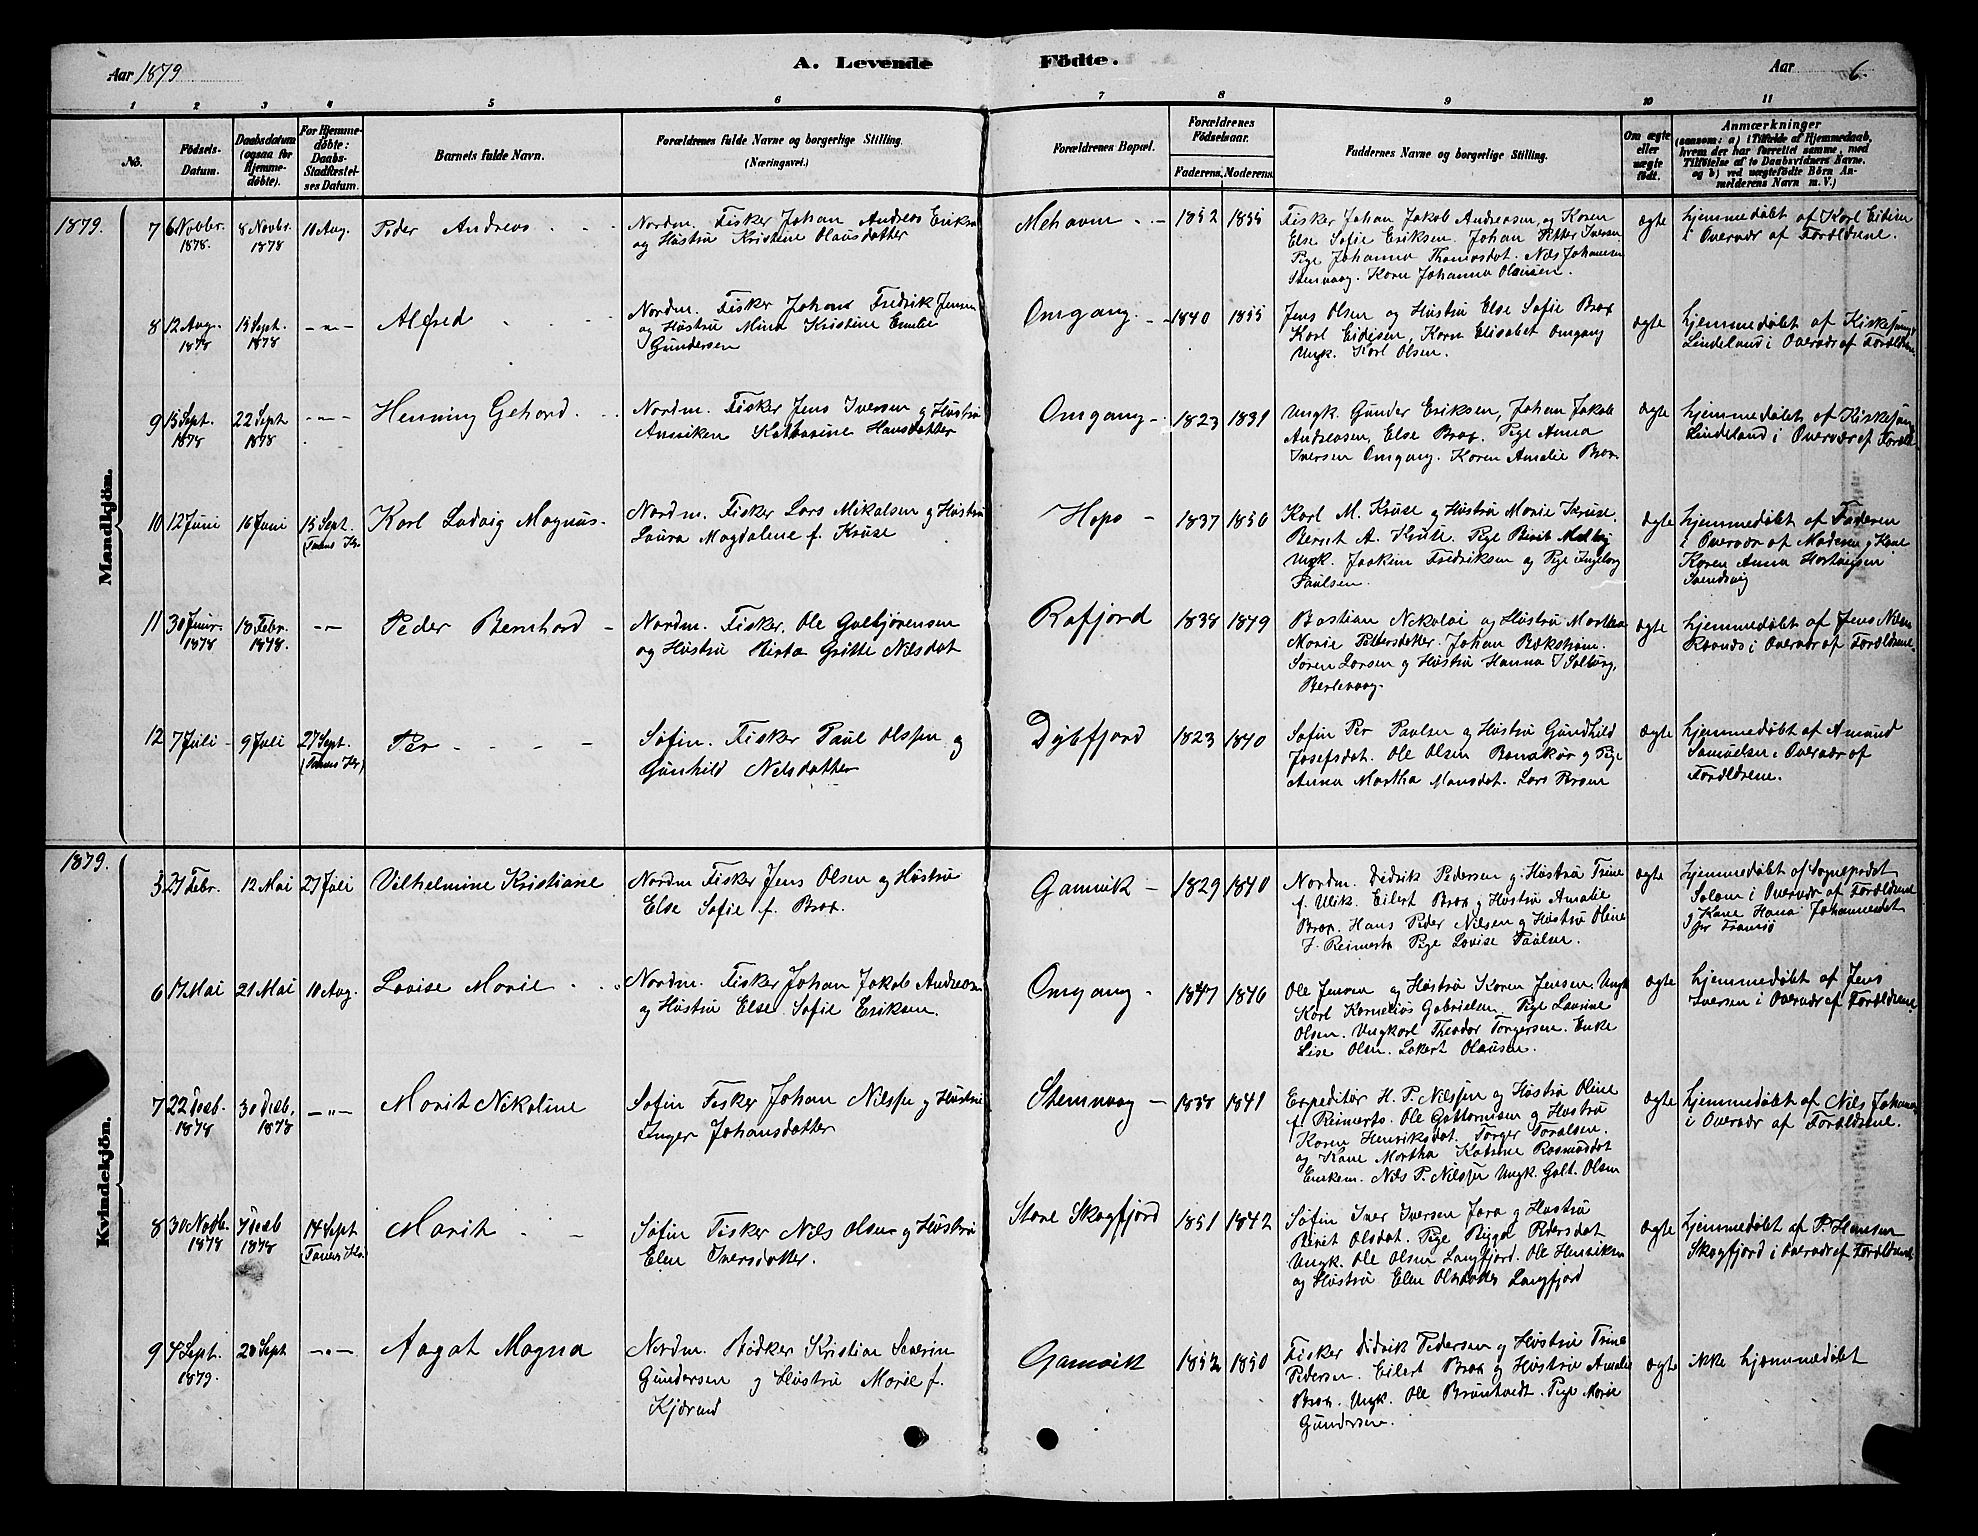 Aar 1879
A. Levende Födte.
Aar 6.
1 2 3 4 5 6 7 8 9 10 11
No.
Födsels-Datum.
Daabsdatum (ogsaa for Hjemme-döbte).
For Hjemme-döbte: Daabs-Stadfæstel-ses Datum.
Barnets fulde Navn.
Forældrenes fulde Navne og borgerlige Stilling.
(Næringsvei.)
Forældrenes Bopæl.
Forældrenes Födselsaar.
Faderens. Moderens.
Faddernes Navne og borgerlige Stilling.
Om ægte eller uægte födt.
Anmærkninger
(saasom: a) i Tilfælde af Hjemmedaab,
hvem der har forrettet samme, med
Tilföielse af to Daabsvidners Navne.
og b) ved uægtefödte Börn An-
melderens Navn m. V.)
1879.
Mandkjön.
7 6 Novbr. 1878. 8 Novbr. 1878 10 Aug.
Peder Andreas
Nordm. Fisker Johan Andreas Eriksn
og Hustru Kristine Olausdatter
Mehavn 1852 1855
Fisker Johan Jakob Andreasen, og Karen
Else Sofie Eriksen. Johan Petter Iversen
Pige Johanna Thomasdat. Nils Johansen
Stenvaag. Karn Johanna Olausen.
ægte
hjemmedøbt af Karl Eidesen
i Overvær af Forældrene.
8 12 Aug. 1878 15 Sept. 1878 -"-
Alfred
Nordm. Fisker Johan Fredrik Jensen
og Hustru Mina Kristine Emilie
Gundersen
Omgang. 1840 1855
Jens Olsen og Hustru Else Sofie Brox
Karl Eidesen, Karn Elisabet Omgang
Ungk. Karl Olsen.
ægte
hjemmedøbt af Kirkesanger
Lindeland i Overvær af Forældrene
9 15 Sept. 1878 22 Sept 1878 -"-
Henning Gehard.
Nordm. Fisker Jens Iversen og Hustru
Anniken Katharine Hansdatter
Omgang 1823 1831
Ungk. Gunder Eriksen, Johan Jakob
Andreasen, Else Brox. Pige Anna
Iversen Omgang. Karen Amalie Brox.
ægte
hjemmedøbt af Kirkesang.
Lindeland i Overvær af Foræld
10 12 Juni 16 Juni 15 Sept. (Tanens K.)
Karl Ludvig Magnus
Nordm. Fisker Lars Mikalsen og Hustru
Laura Magdalene f. Kruse
Hops 1837 1850
Karl M. Kruse og Hustru Marie Kruse.
Bernt A. Kruse. Pige Berit Melby
Ungk. Joakim Fredriksen og Pige Ingeborg
Paulsen.
ægte
hjemmedøbt af Faderen
i Overvær af Moderen og Kone
Karen Anna Hartvigsen
Sandvig
11 30 Januar. 1878 10 Febr. 1878. -"-
Peder Bernhard
Nordm. Fisker. Ole Gulbjørensen
og Hustru Berta Gritte Nilsdat
Rafjord 1838 1849
Bastian Nikolai og Hustru Martha
Marie Pettersdatter. Johan Bekstrøm.
Søren Larsen og Hustru Hanna J Solborg,
Berlevaag.
ægte
hjemmedøbt af Jens Nilsen
Raanes i Overvær af Forældrene.
12 7 Juli 9 Juli 27 Sept. (Tanens Kr)
Per
Søfin. Fisker Paul Olsen og
Gunhild Nelsdatter
Dybfjord 1823 1840
Søfin Per Paulsen og Hustru Gundhild
Josefsdat. Ole Olsen Bonakas og Pige
Anna Martha Mansdat. Lars Broen
ægte
hjemmedøbt af Amund
Samuelsen i Overvær af
Forældrene.
1879.
Kvindekjön.
5 27 Febr. 12 Mai 27 Juli
Vilhelmine Kristiane
Nordm Fisker Jens Olsen og Hustru
Else Sofie f. Brox.
Gamvik 1829 1840
Nordm. Didrik Pedersen og Hustru Trine
f. Ulik. Eilert Brox og Hustru Amalie
Brox. Hans Peder Nilsen og Hustru Oline
f. Reimerts Pige Lovise Paulsen.
ægte
hjemmedøbt af Sognepræst
Salom i Overvær af Forældrene
og Kone Hana Johannesdat
fra Tromsø
6 17 Mai 21 Mai 10 Aug.
Lovise Marie
Nordm. Fisker Johan Jakob Andreasen
og Hustru Else Sofie Eriksen.
Omgang 1847 1846
Ole Jensen og Hustru Karen Jensen. Ungk
Karl Kornelius Gabrielsen Pige Laurine
Olsen. Ungkarl Theodor Torgersen. Enke
Lise Olsen. Lokert Olausen.
ægte
hjemmedøbt af Jens
Iversen i Overvær af Forældrene.
7 22 Decb. 1878 30 Decb. 1878 -"-
Marit Nikoline
Søfin Fisker Johan Nilsen og Hustru
Inger Johansdatter
Stenvaag 1838 1841
Expeditør H. P. Nilsen og Hustru Oline
f. Reimerts. Ole Guttormsen og Hustru
Karen Henriksdat. Torger Toralsen.
og Kone Martha Katrine Rasmusdat
Enkem. Nils P. Nilsen Ungk. Galt. Olsen
ægte
hjemmedøbt af Nils Johans
i Overvær af Forældrene.
8 30 Novb. 1878 7 Decb 1878 14 Sept (Tanens Kr.)
Marit
Søfin Fisker Nils Olsen og Hustru
Elen Iversdatter.
Store Skogfjord 1851 1842
Søfin Iver Iversen Jara og Hustru
Berit Olsdat. Pige Bigga Pedersdat
Ungk. Ole Olsen Langfjord. Ole Henriksen
og Hustru Elen Olsdatter Langfjord
ægte
hjemmedøbt af P. Hansen
Skogfjord i Overvær af Forældrene
9 4 Sept. 1879. 20 Sept -"-
Aagot Magna
Nordm. Bødker Kristian Severin
Gundersen og Hustru Marie f.
Kjørend
Gamvik 1852 1850
Fisker Didrik Pedersen og Hustru Trine
Pedersen. Eilert Brox og Hustru Amalie
Brox. Ungk. Ole Brantvedt. Pige Marie
Gundersen.
ægte
ikke hjemmedøbt